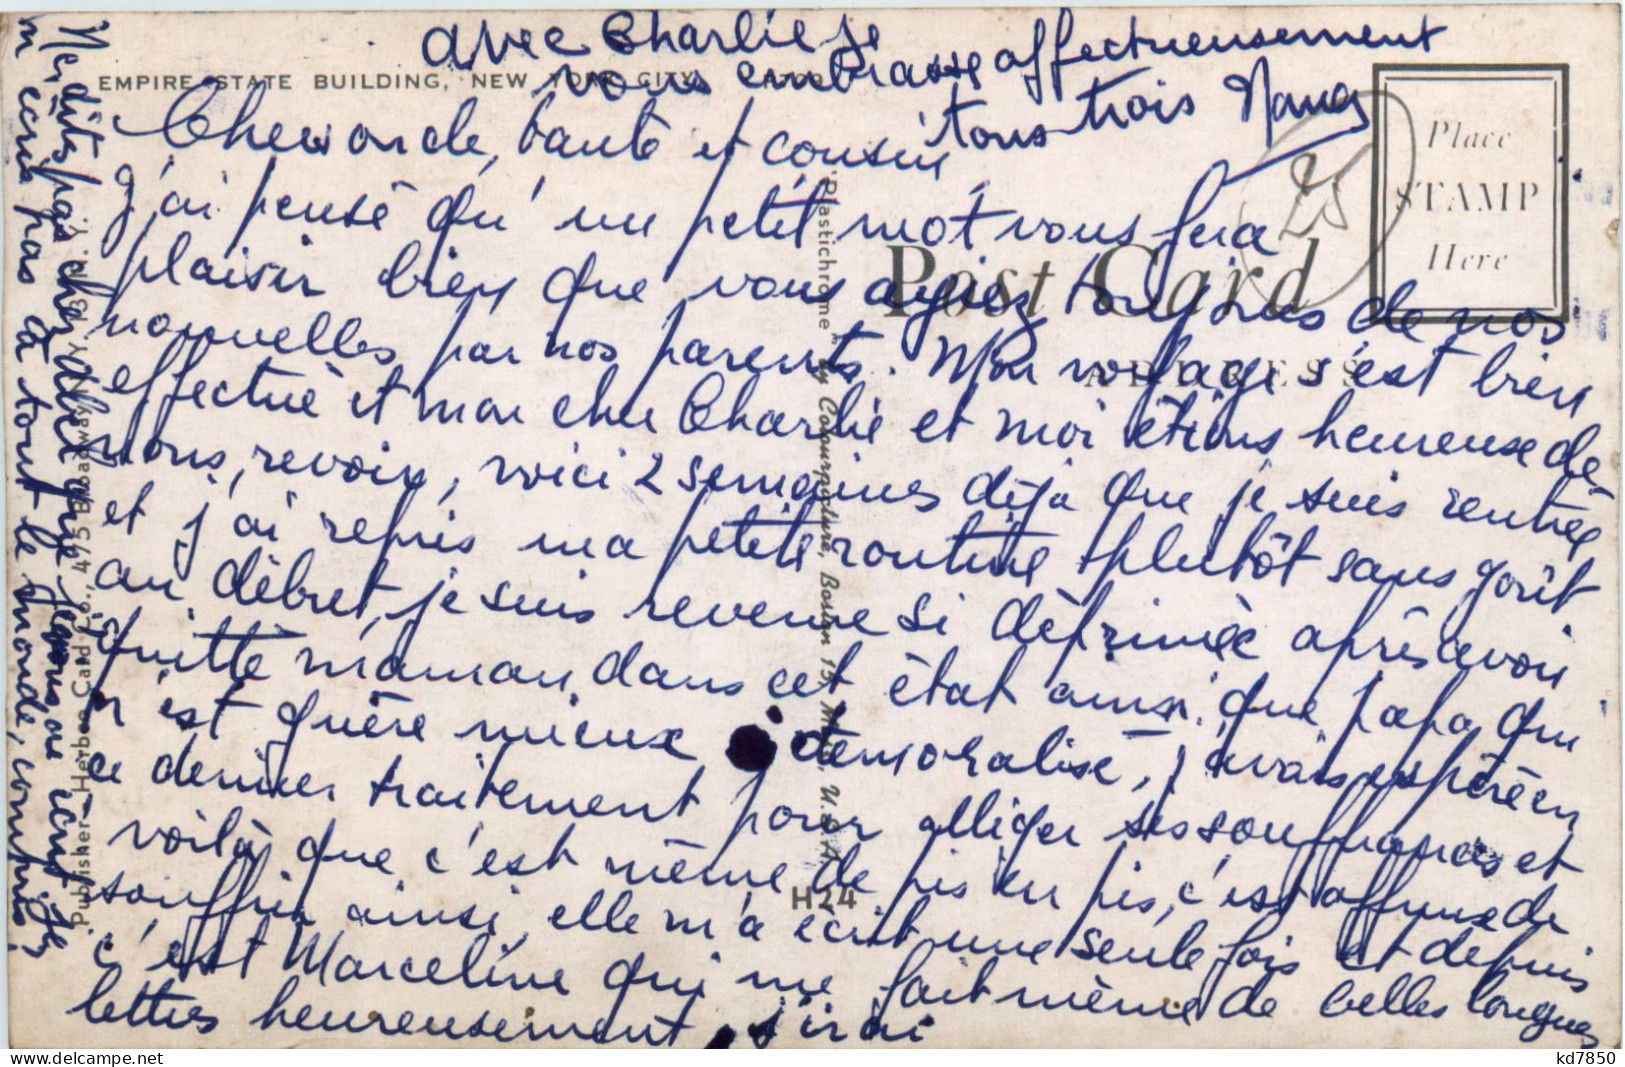 avec Charlie je
vous embrasse affectueusement
tous trois Nancy
EMPIRE STATE BUILDING, NEW YORK CITY
Place
STAMP
Here
25
Post Card
ADDRESS
Chers oncle, tante et cousin
j'ai pensé qu'un petit mot vous fera
plaisir bien que vous ayiez toujours de nos
nouvelles par nos parents. Mon voyage s'est bien
effectué et mon cher Charlie et moi étions heureuse de
nous revoir, voici 2 semaines déja que je suis rentrée
et j'ai repris ma petite routine plutôt sans goût
au début, je suis revenue si déprimée après avoir
quitté maman dans cet état ainsi que papa qui
n'est guère mieux démoralisé, j'avais espéré en
ce dernier traitement pour alliger ses souffrances et
voilà que c'est même de pis en pis, c'est affreux de
souffrir ainsi, elle m'a écrit une seule fois et depuis
c'est Marceline qui me fait même de belles longues
lettres heureusement, j'irai
Ne dites pas cher que
m'écrit pas à tout le monde,
"Plastichrome" by Colourpicture, Boston 15, Mass., U.S.A.
Publisher—Herbco Card Co., 475 Broadway, N. Y. 13, N. Y.
H24
kd7850